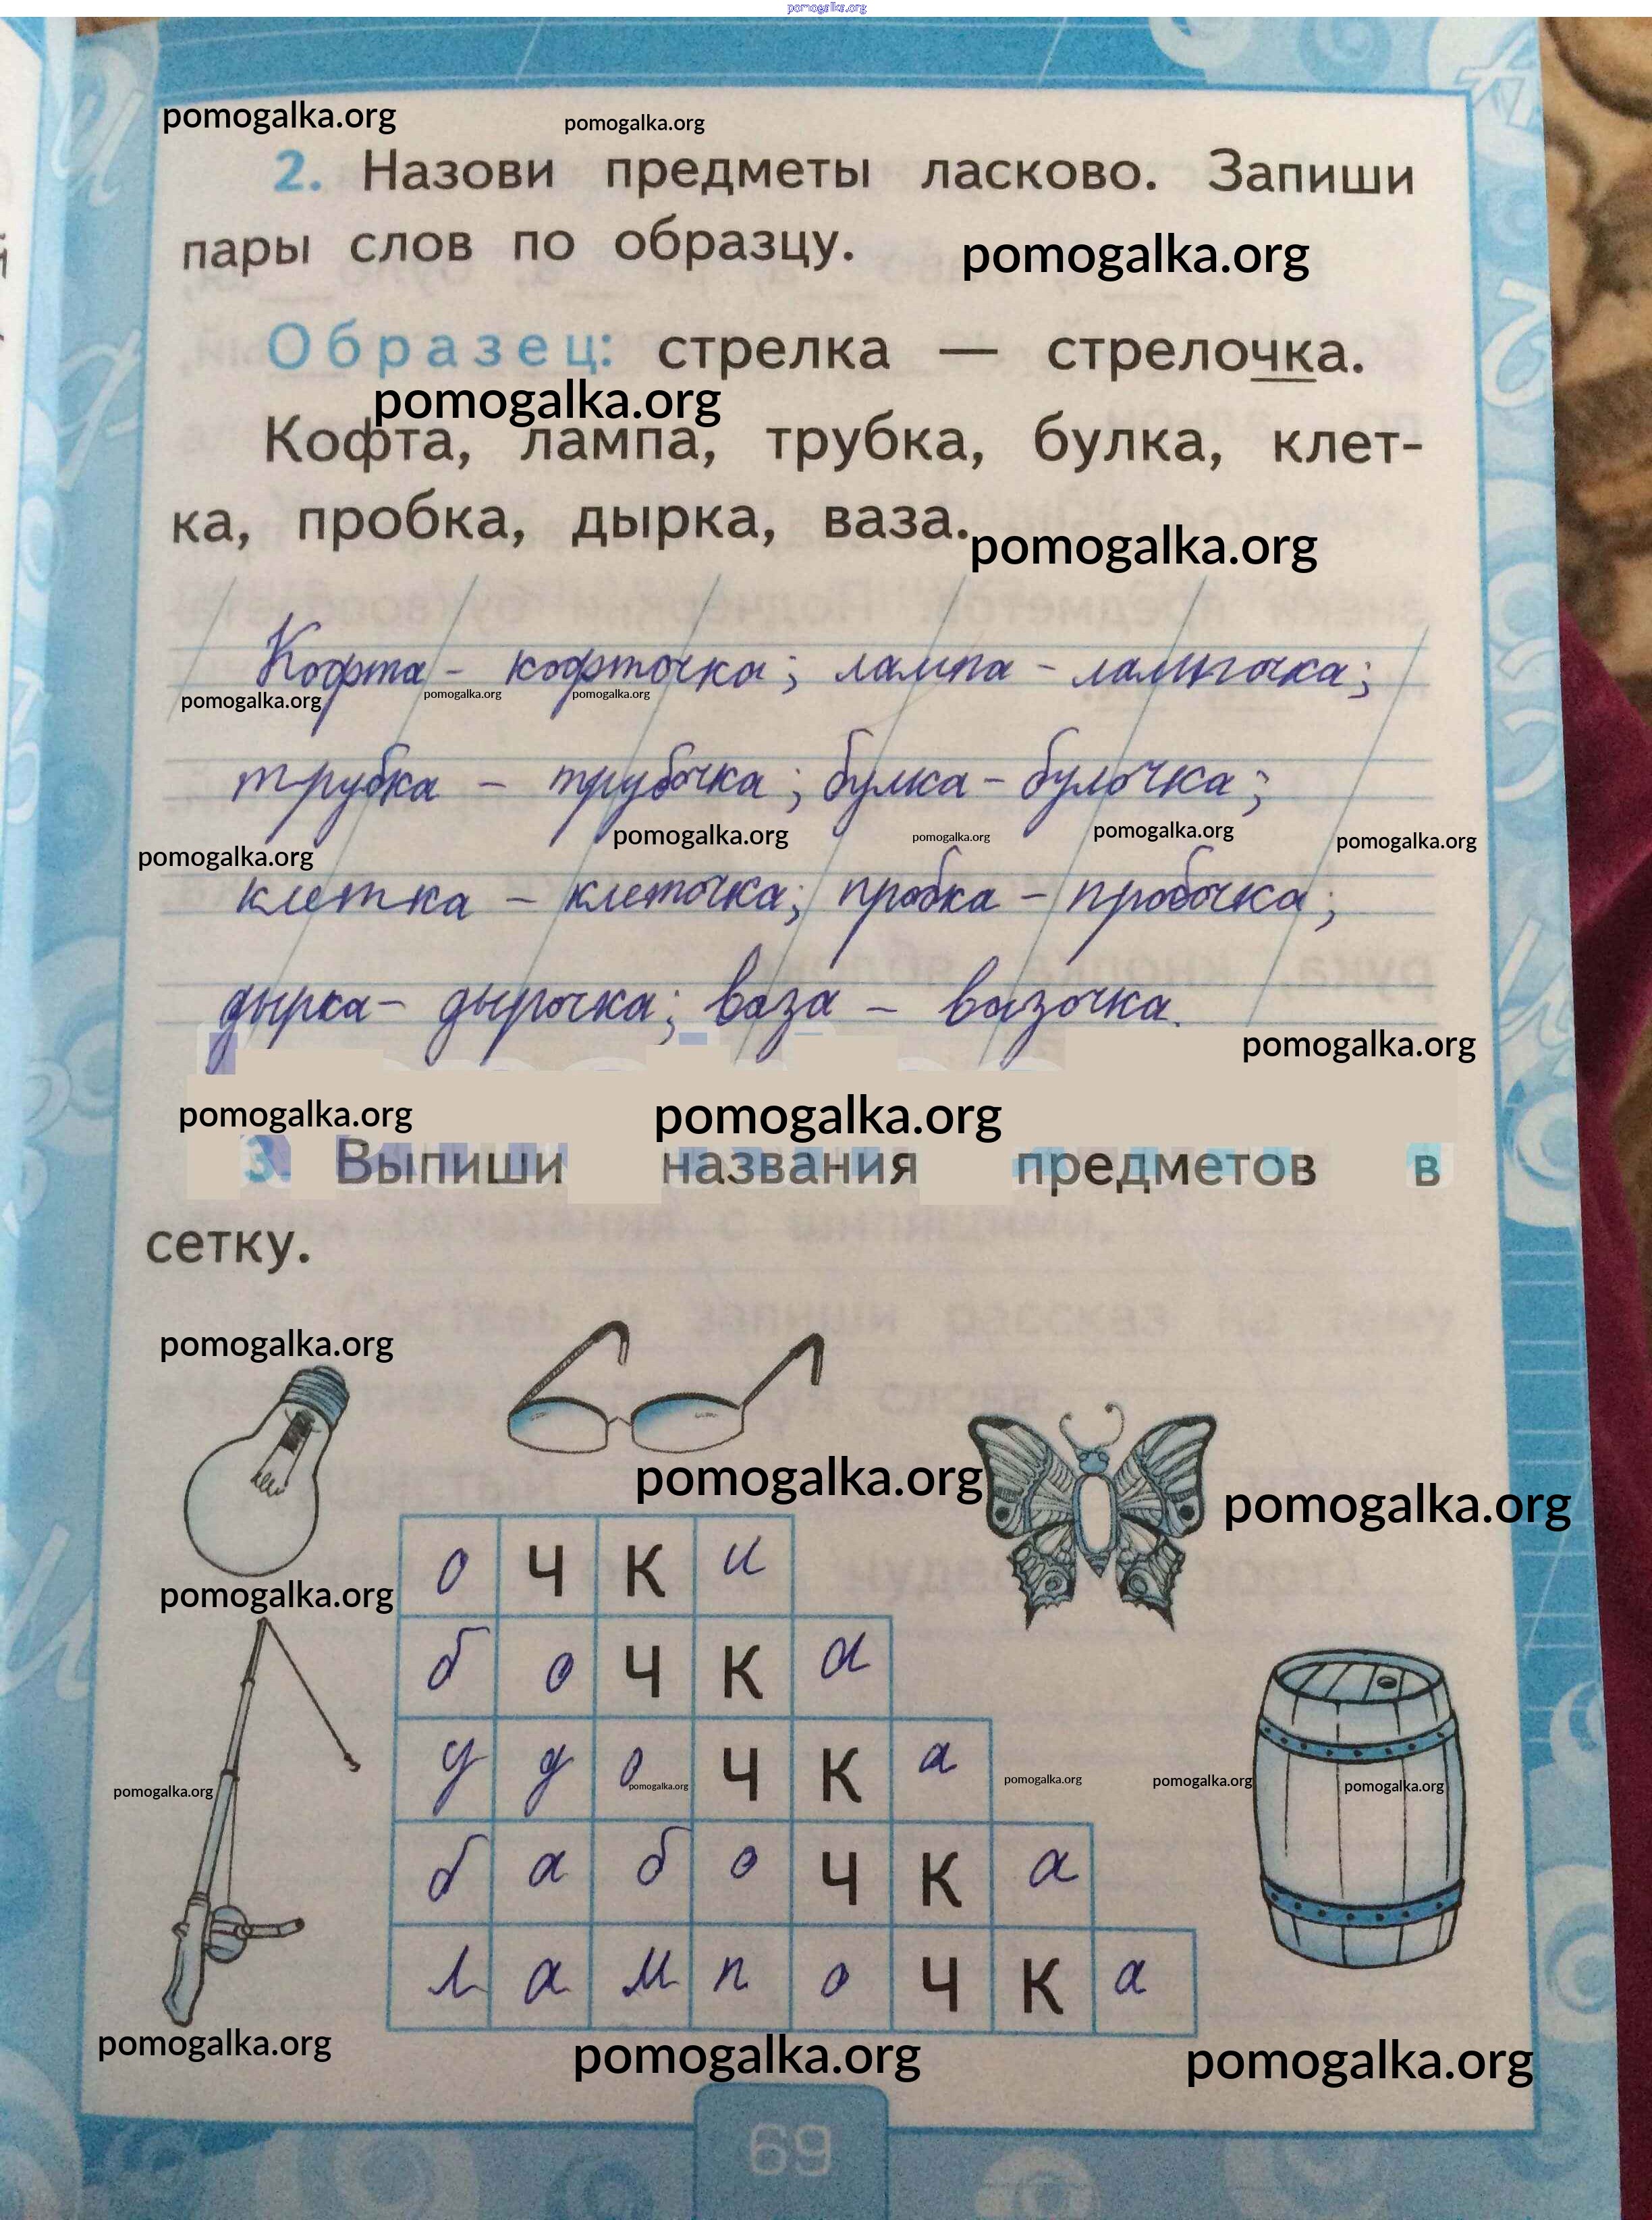 pomogalka.org
pomogalka.org pomogalka.org
2. Назови предметы ласково. Запиши
пары слов по образцу. pomogalka.org
Образец: стрелка — стрелочка.
pomogalka.org
Кофта, лампа, трубка, булка, клет-
ка, пробка, дырка, ваза.
pomogalka.org
Кофта - кофточка; лампа - лампочка;
pomogalka.org pomogalka.org pomogalka.org
трубка - трубочка; булка - булочка;
pomogalka.org pomogalka.org pomogalka.org pomogalka.org pomogalka.org
клетка - клеточка; пробка - пробочка;
дырка - дырочка; ваза - вазочка.
pomogalka.org
pomogalka.org pomogalka.org
3. Выпиши названия предметов в
сетку.
pomogalka.org
pomogalka.org pomogalka.org
о Ч К и
pomogalka.org
б о Ч К а
у д о Ч К а
pomogalka.org pomogalka.org pomogalka.org pomogalka.org pomogalka.org
б а б о Ч К а
л а м п о Ч К а
pomogalka.org pomogalka.org pomogalka.org
69